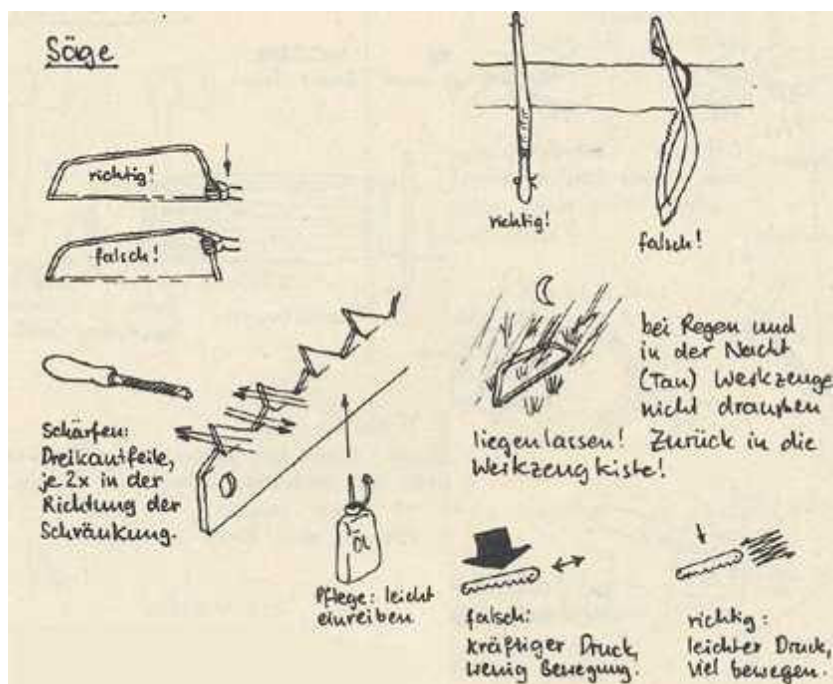 Säge
richtig!
falsch!
richtig!
falsch!
Schärfen:
Dreikantfeile,
je 2x in der
Richtung der
Schränkung.
Öl
Pflege: leicht
einreiben
bei Regen und
in der Nacht
(Tau) Werkzeuge
nicht draußen
liegenlassen! Zurück in die
Werkzeugkiste!
falsch:
kräftiger Druck,
wenig Bewegung.
richtig:
leichter Druck,
viel bewegen.